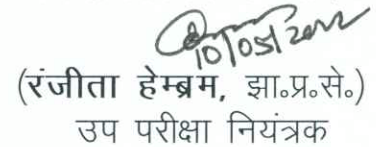 10/05/2022
(रंजीता हेम्ब्रम, झा॰प्र॰से॰)
उप परीक्षा नियंत्रक